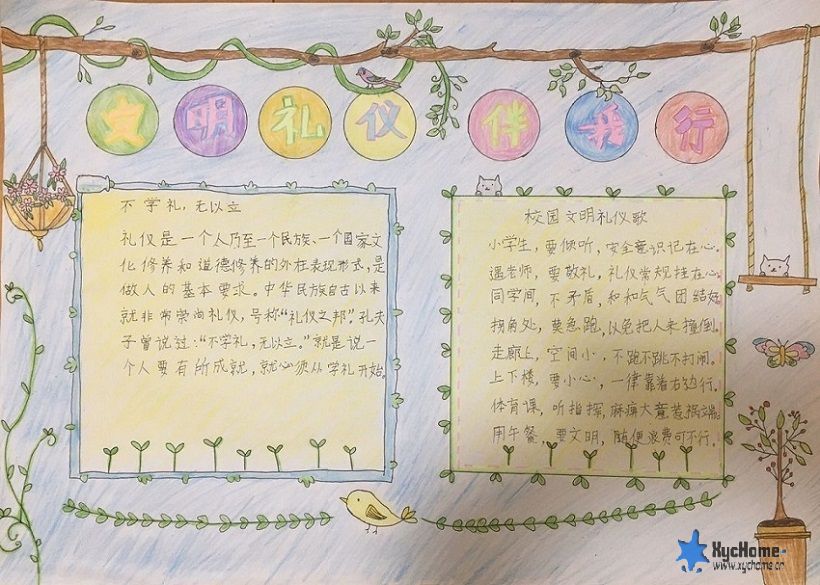 文明礼仪伴我行
不学礼，无以立
礼仪是一个人乃至一个民族、一个国家文
化修养和道德修养的外在表现形式，是
做人的基本要求。中华民族自古以来
就非常崇尚礼仪，号称“礼仪之邦”孔夫
子曾说过：“不学礼，无以立。”就是说一
个人要有所成就，就必须从学礼开始。
校园文明礼仪歌
小学生，要倾听，安全意识记在心。
遇老师，要敬礼，礼仪常规挂在心。
同学间，不矛盾，和和气气团结好
拐角处，莫急跑，以免把人来撞倒。
走廊上，空间小，不跑不跳不打闹。
上下楼，要小心，一律靠着右边行。
体育课，听指挥，麻痹大意惹祸端。
用午餐，要文明，随便浪费可不行。
XycHome
www.xychome.cn